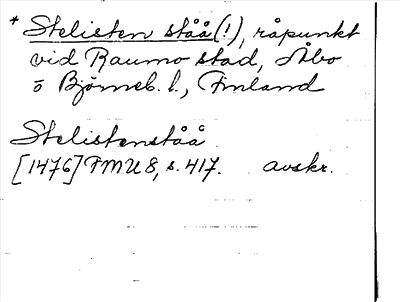 * Stelisten ståå (!), råpunkt
vid Raumo stad, Åbo
o Björneb. l., Finland
Stelistenståå
[1476] FMU 8, s. 417. avskr.